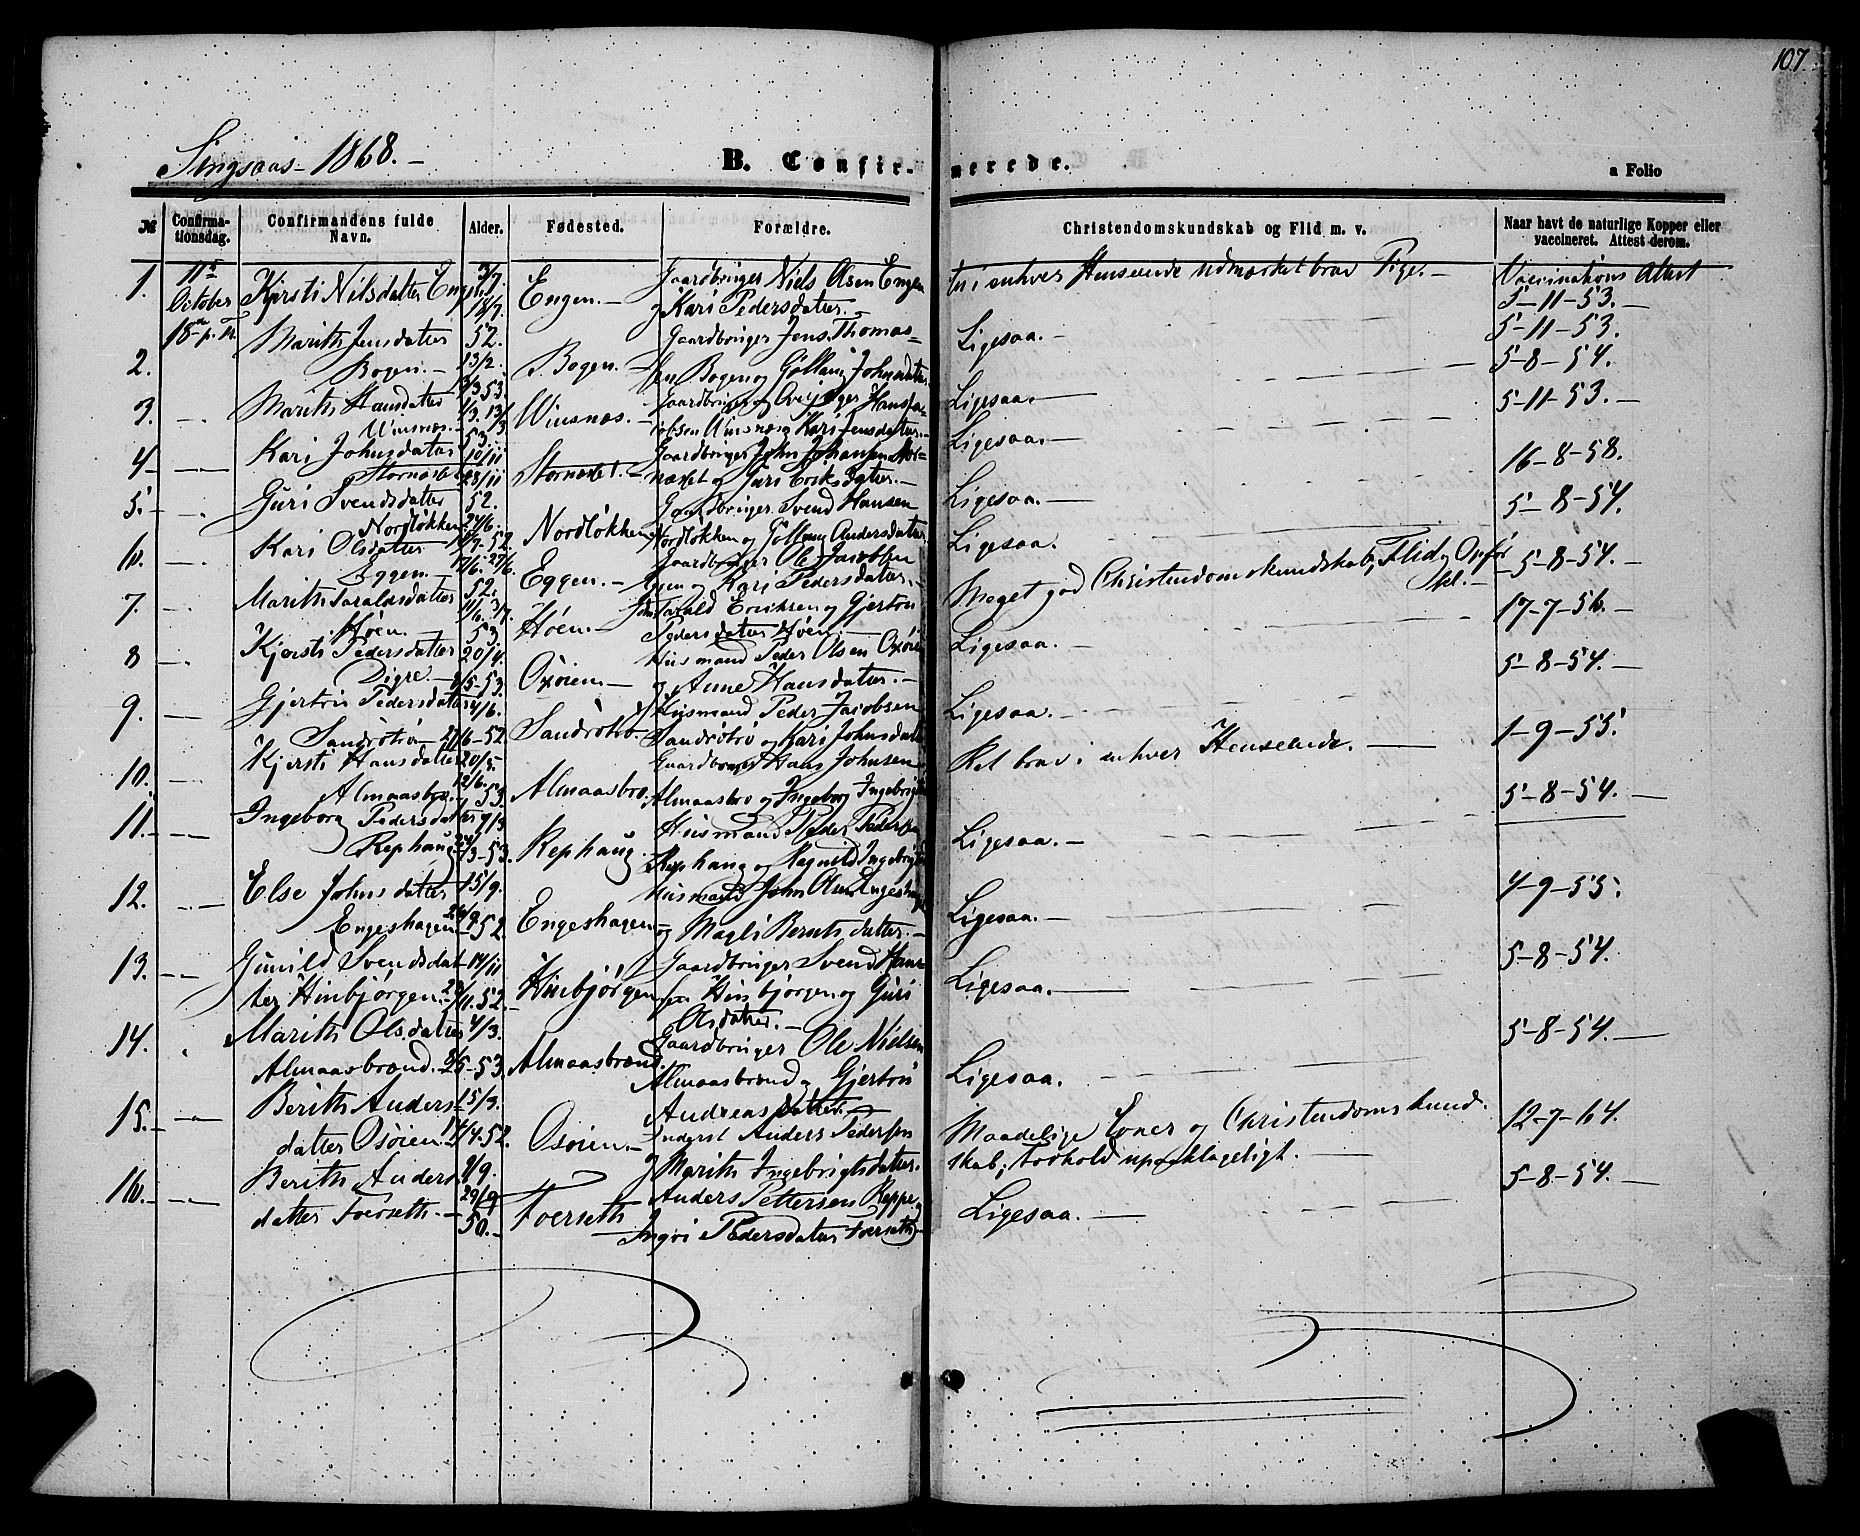 107
Singsaas - 1868. -
B. Confirmerede.
a Folio
№
Confirmationsdag.
Confirmandens fulde Navn.
Alder.
Fødested.
Forældre.
Christendomskundskab og Flid m. v.
Naar havt de naturlige Kopper eller vaccineret. Attest derom.
1. 11te October 18de p. Tr. Kjersti Nilsdatter Engen 3/7 18/7 52. Engen. - Gaardbruger Niels Olsen Engen
og Kari Pedersdatter. - En i enhver Henseende udmærket brav Pige. - Vaccinations Attest
5-11-53. -
2. Marith Jensdatter Bogen. - 13/2 53 Bogen. - Gaardbruger Jens Thomas=
sen Bogen og Gølluug Johnsdatter Ligesaa. - 5-11-53.
5-8-54.
3. - Marith Hansdatter Winsnæs. - 53. Winsnæs. - Gaardbruger Hans Ja=
cobsen Winsnæs og Kari Jensdatter. - Ligesaa. - 5-11-53. -
4 - Kari Johnsdatter Stornæset 10/11 23/11 52. Stornæset. - Gaardbruger John Johansen Stor=
næset og Guri Eriksdatter. - Ligesaa. - 16-8-58.
5. - Guri Svendsdatter Nordløkken 24/6. 52. Nordløkken Gaardbruger Svend Hansen
Nordløkken og Andersdatter Ligesaa. - 5-8-54.
6. - Kari Olsdatter Eggen. - 17/6. 27/6. 52. Eggen. - Gaardbruger Ole Jacobsen
Eggen og Kari Pedersdatter. - Ligesaa. - 5-8-54. -
7. - Marith Haraldsdatter Høen. 53. Høen. - Harald Erichsen og Gjertru
Pedersdatter Høen Meget god Christendomskundskab, Flid og Opførsel. - 17-7-56. -
8 - Kjersti Pedersdatter Digre - 20/4. 8/5-53. Oxøien. - Husmand Peder Olsen Oxøien
og Anne Hansdatter. - Ligesaa. - 5-8-54. -
9. - Gjertru Pedersdatter Sandrøtrø - 4/6. 27/6-52. Sandrøtrø Husmand Peder Jacobsen
Sandrøtrø og Kari Johnsdatter Ligesaa. - 1-9-55.
10. - Kjersti Hansdatter Almaasbro. - 20/5. 12/6. 53. Almaasbro. Gaardbruger Hans Johnsen
Almaasbro og Ingeborg Ingebrigtsd Ret brav i enhver Henseende. - 5-8-54. -
11. - Ingeborg Pedersdatter Rephaug 9/3 24/3-53. Rephaug Husmand Peder Pedersen
Rephaug og Ragnild Ingebrigtsd Ligesaa. -
12. - Else Johnsdatter Engeshagen 15/9. 26/9-52. Engeshagen Husmand John Olsen Engeshagen
og Magli Berntsdatter. - Ligesaa. - 4-9-55.
13. - Gunild Svendsdat
ter Hinbjørgen. 14/11 28/11.52. - Hinbjørgen Gaardbruger Svend Han=
sen Hinbjørgen og Guri
Olsdatter. - Ligesaa. - 5-8-54. -
14. Marith Olsdatter
Almaasbrænd. 4/3. 8/5-53 Almaasbrænd. Gaardbruger Ole Nielsen
Almaasbrænd og Gjertru
Andreasdatter. - Ligesaa. 5-8-54. -
15. - Berith Anders=
datter Osøien. - 15/3. 14/4-52. Osøien. - Inderst Anders Pedersen
og Marith Ingebrigtsdatter. Maadelige Evner og Christendomskund=
skab; Forhold upaaklageligt. - 12-7-64.
16. - Berith Anders
datter Foerseth. - 9/9. 29/9 50. - Foerseth Anders Pettersen Reppe og
Ingri Pedersdatter Foerseth - Ligesaa. - 5-8-54. -